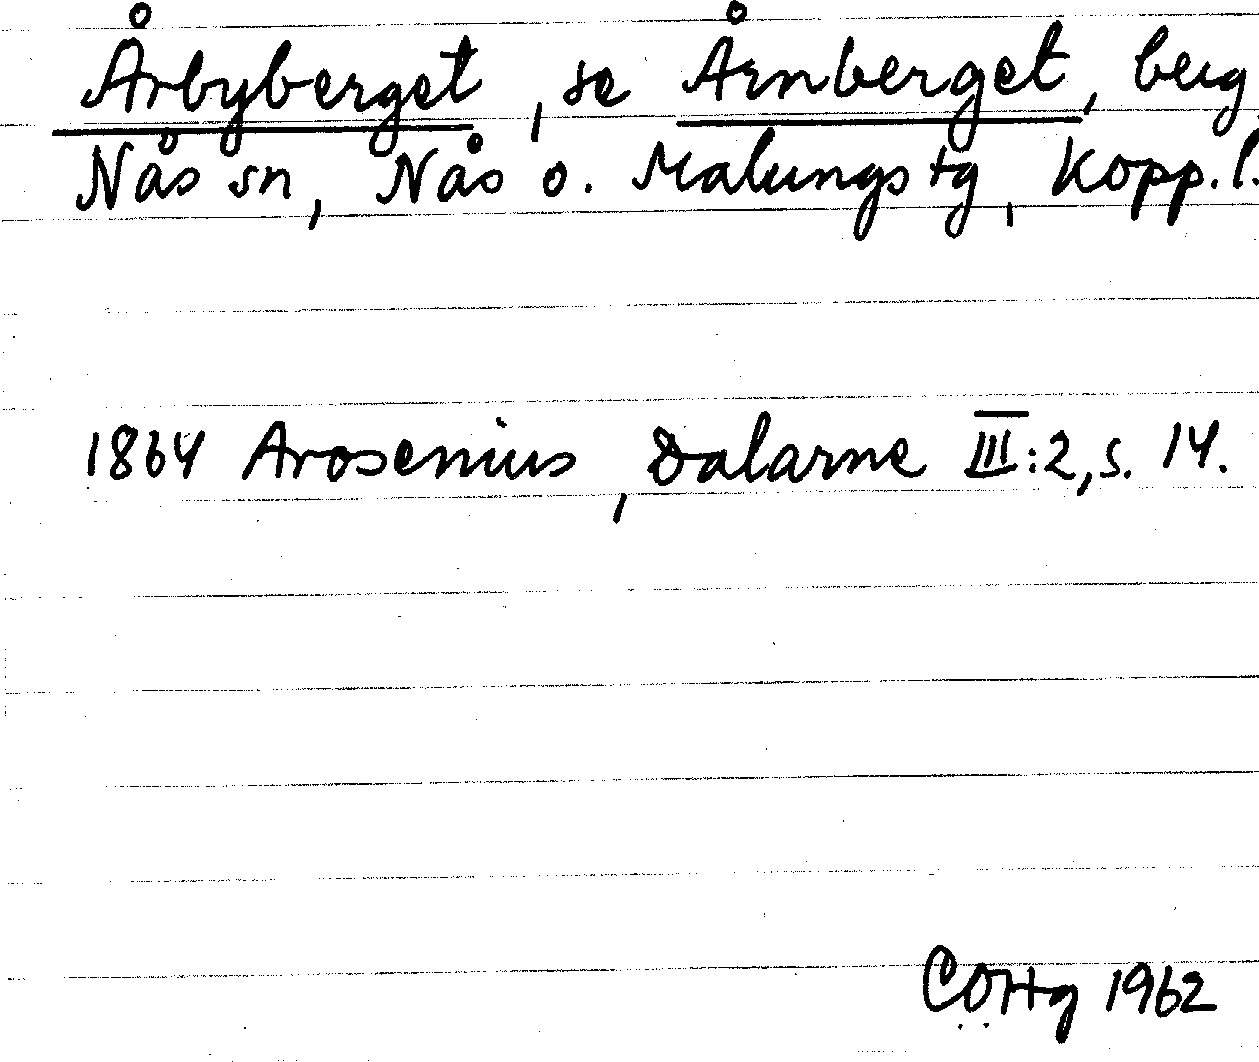 Årbyberget, se Årnberget, berg
Nås sn, Nås o. Malungs tg, Kopp. l.
1864 Arosenius, Dalarne III:2, s. 14.
COHg 1962